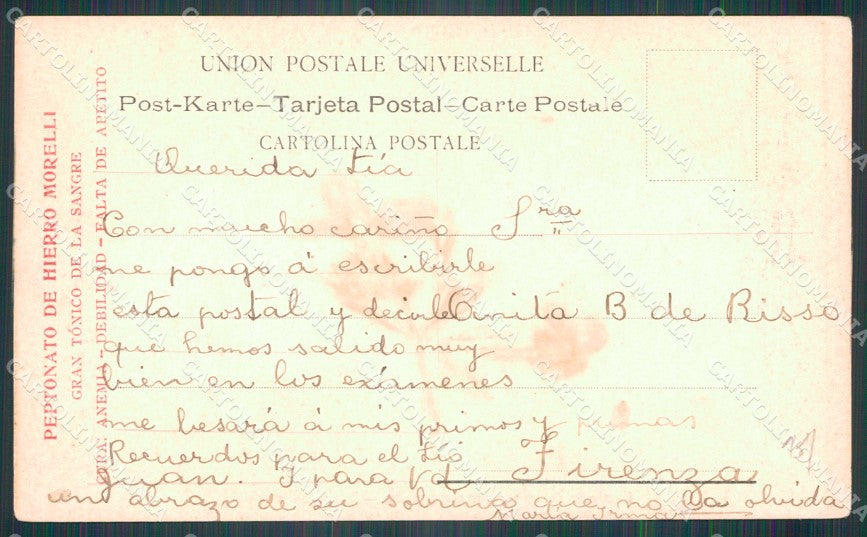 UNION POSTALE UNIVERSELLE
Post-Karte-Tarjeta Postal-Carte Postale
CARTOLINA POSTALE
PEPTONATO DE HIERRO MORELLI
GRAN TÓNICO DE LA SANGRE
CTRA. ANEMIA - DEBILIDAD - FALTA DE APETITO
Querida tía
Con mucho cariño
me pongo á escribirle
esta postal y decirle
que hemos salido muy
bien en los exámenes
me besará á mis primos y primas
Recuerdos para el tío
Juan. Y para Vd
un abrazo de su sobrino que no la olvida
María Irma
Sra
Anita B de Risso
Firenza
CARTOLINOMANIA